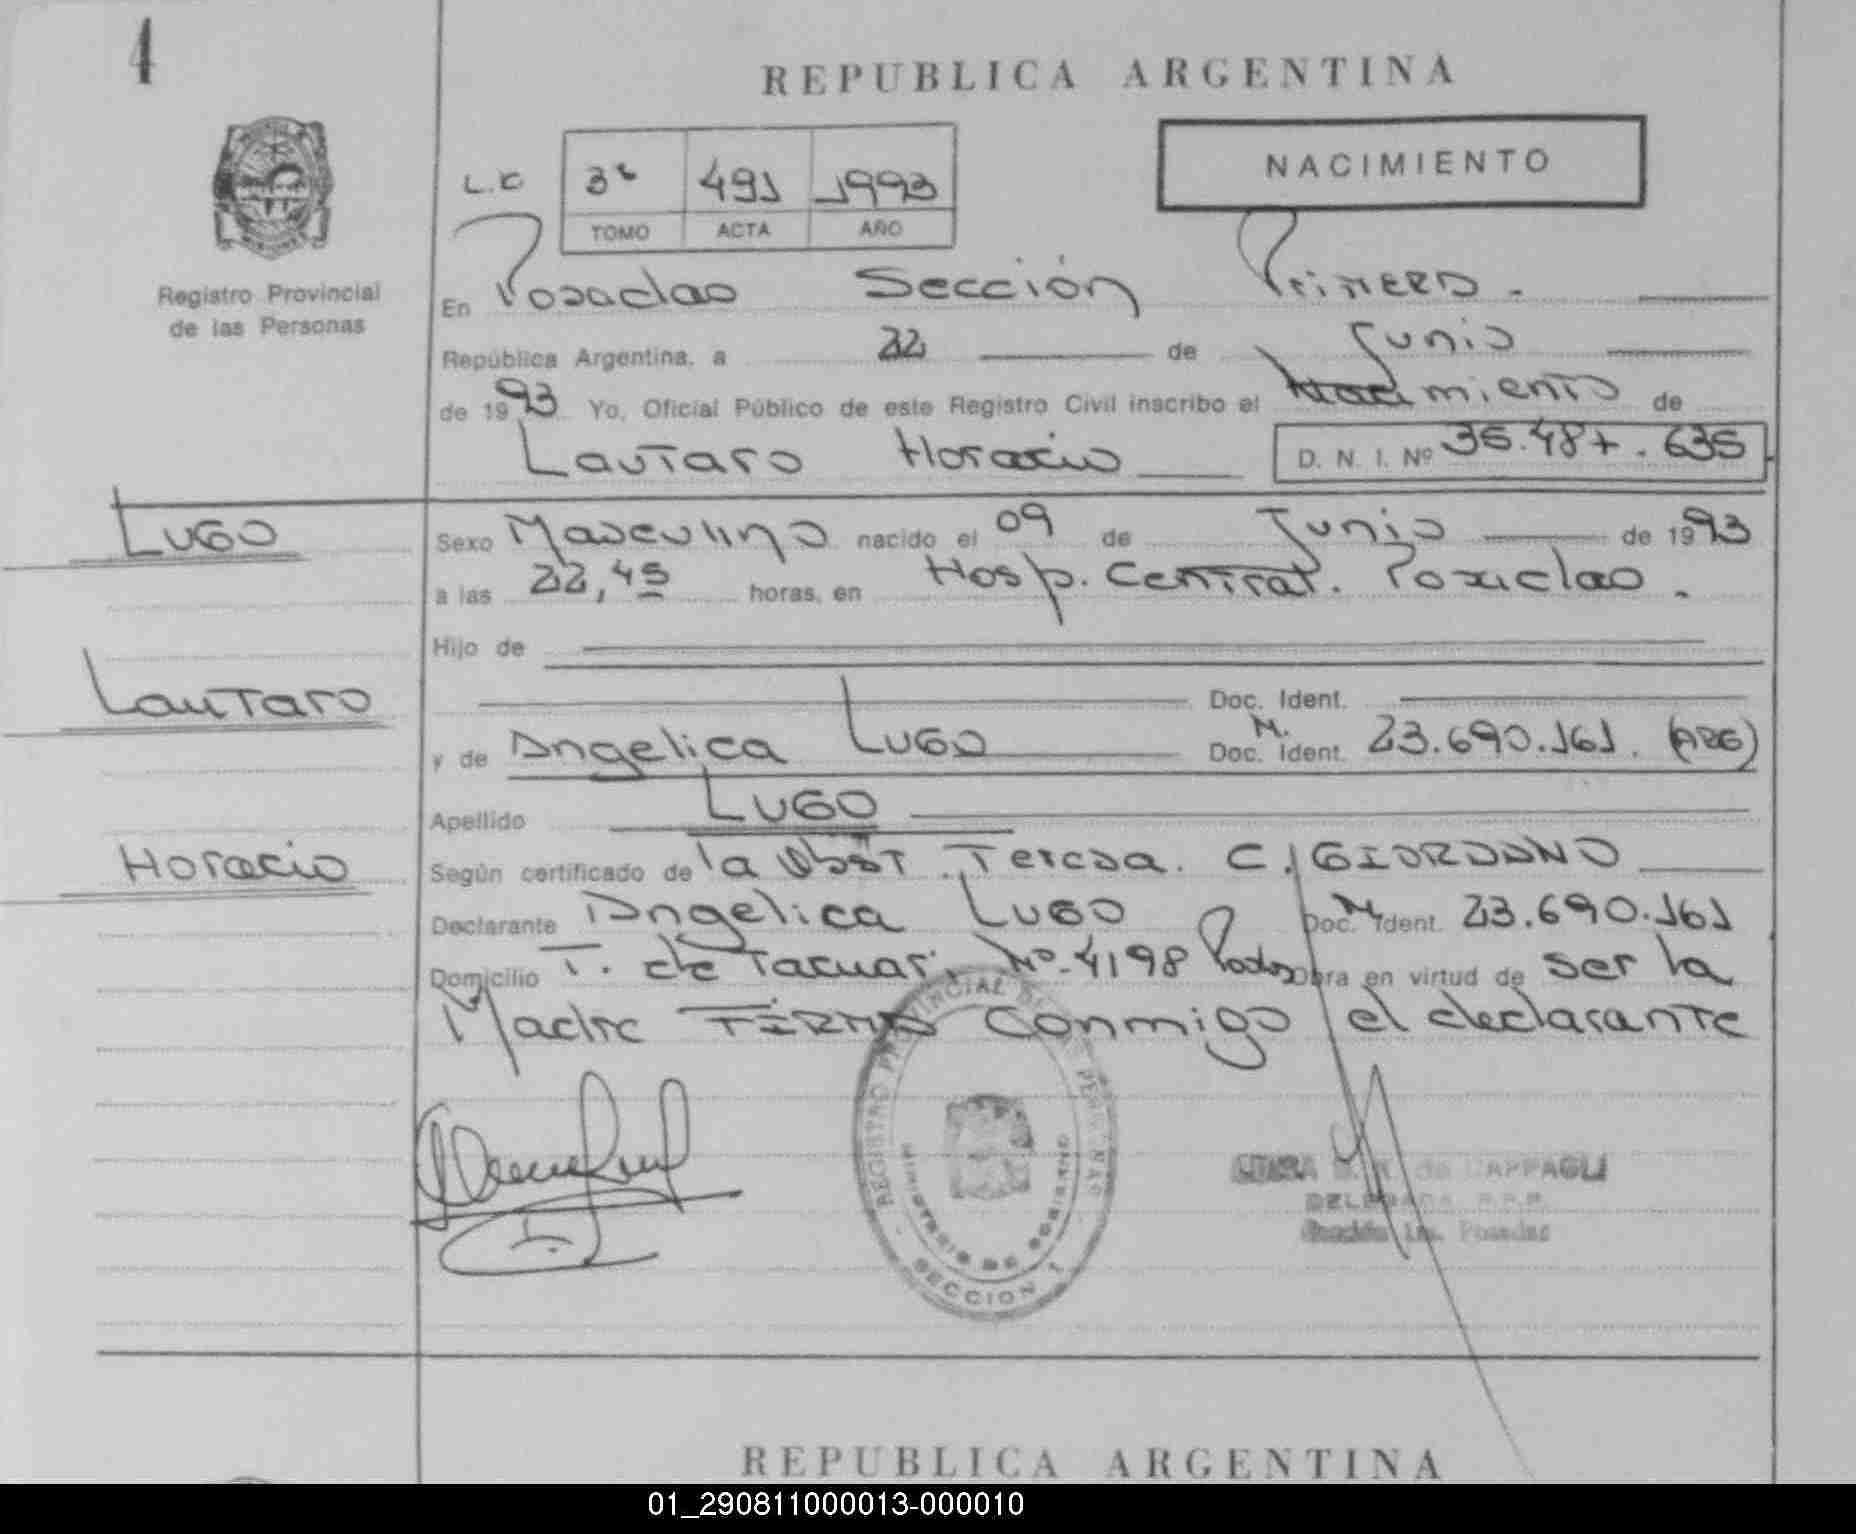 4
REPUBLICA ARGENTINA
NACIMIENTO
L.C 3º 491 1993
TOMO ACTA AÑO
Registro Provincial
de las Personas
En Posadas Sección Primera.
República Argentina, a 22 de Junio
de 1993 Yo, Oficial Público de este Registro Civil inscribo el Nacimiento de
Lautaro Horacio D. N. I. Nº 36.487.635
LUGO
Sexo Masculino nacido el 09 de Junio de 1993
a las 22,45 horas, en Hosp. Central. Posadas.
Hijo de
Doc. Ident.
Lautaro
y de Angelica LUGO M. Doc. Ident. 23.690.161. (ARG)
Apellido LUGO
Horacio
Según certificado de la Obst. Teresa. C. GIORDANO
Declarante Angelica LUGO Doc. M. Ident. 23.690.161
Domicilio T. de Tacuari Nº 4198 Pdas Obra en virtud de ser la
Madre FIRMA conmigo el declarante
REGISTRO PROVINCIAL DE LAS PERSONAS
MINISTERIO DE GOBIERNO
SECCION 1
de CAPPAGLI
DELEGADA R.P.P.
Sección 1ra. Posadas
REPUBLICA ARGENTINA
01_290811000013-000010